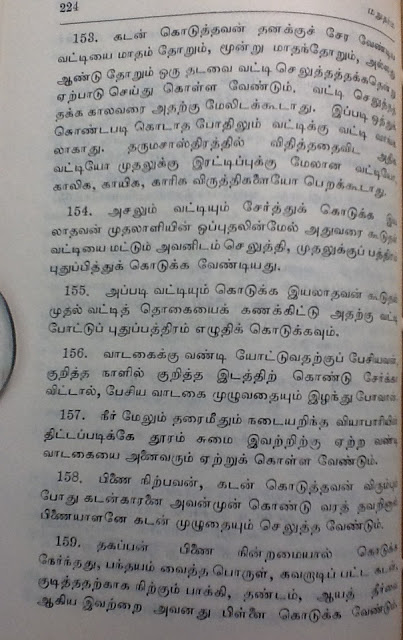 224
153. கடன் கொடுத்தவன் தனக்குச் சேர வேண்டிய
வட்டியை மாதம் தோறும், மூன்று மாதந்தோறும், அல்லது
ஆண்டு தோறும் ஒரு தடவை வட்டி செலுத்தத்தக்கதென்று
ஏற்பாடு செய்து கொள்ள வேண்டும். வட்டி செலுத்தத்
தக்க காலவரை அதற்கு மேலிடக்கூடாது. இப்படி ஒத்துக்
கொண்டபடி கொடாத போதிலும் வட்டிக்கு வட்டி வாங்க
லாகாது. தருமசாஸ்திரத்தில் விதித்ததைவிட அதிக
வட்டியோ முதலுக்கு இரட்டிப்புக்கு மேலான வட்டியோ,
காலிக, காயிக, காரிக விருத்திகளையோ பெறக்கூடாது.
154. அசலும் வட்டியும் சேர்த்துக் கொடுக்க இய
லாதவன் முதலாளியின் ஒப்புதலின்மேல் அதுவரை கூடுதல்
வட்டியை மட்டும் அவனிடம் செலுத்தி, முதலுக்குப் பத்திரம்
புதுப்பித்துக் கொடுக்க வேண்டியது.
155. அப்படி வட்டியும் கொடுக்க இயலாதவன் கூடுதல்
முதல் வட்டித் தொகையைக் கணக்கிட்டு அதற்கு வட்டி
போட்டுப் புதுப்பத்திரம் எழுதிக் கொடுக்கவும்.
156. வாடகைக்கு வண்டி யோட்டுவதற்குப் பேசியவன்,
குறித்த நாளில் குறித்த இடத்திற் கொண்டு சேர்க்கா
விட்டால், பேசிய வாடகை முழுவதையும் இழந்து போவான்.
157. நீர் மேலும் தரைமீதும் நடையறிந்த வியாபாரியின்
திட்டப்படிக்கே தூரம் சுமை இவற்றிற்கு ஏற்ற வண்டி
வாடகையை அனைவரும் ஏற்றுக் கொள்ள வேண்டும்.
158. பிணை நிற்பவன், கடன் கொடுத்தவன் விரும்பும்
போது கடன்காரனை அவன்முன் கொண்டு வரத் தவறினால்
பிணையாளனே கடன் முழுதையும் செலுத்த வேண்டும்.
159. தகப்பன் பிணை நின்றமையால் கொடுக்க
நேர்ந்தது, பந்தயம் வைத்த பொருள், கவருடிப் பட்ட கடன்,
குடித்ததற்காக நிற்கும் பாக்கி, தண்டம், ஆயத் தீர்வை
ஆகிய இவற்றை அவனது பிள்ளை கொடுக்க வேண்டும்